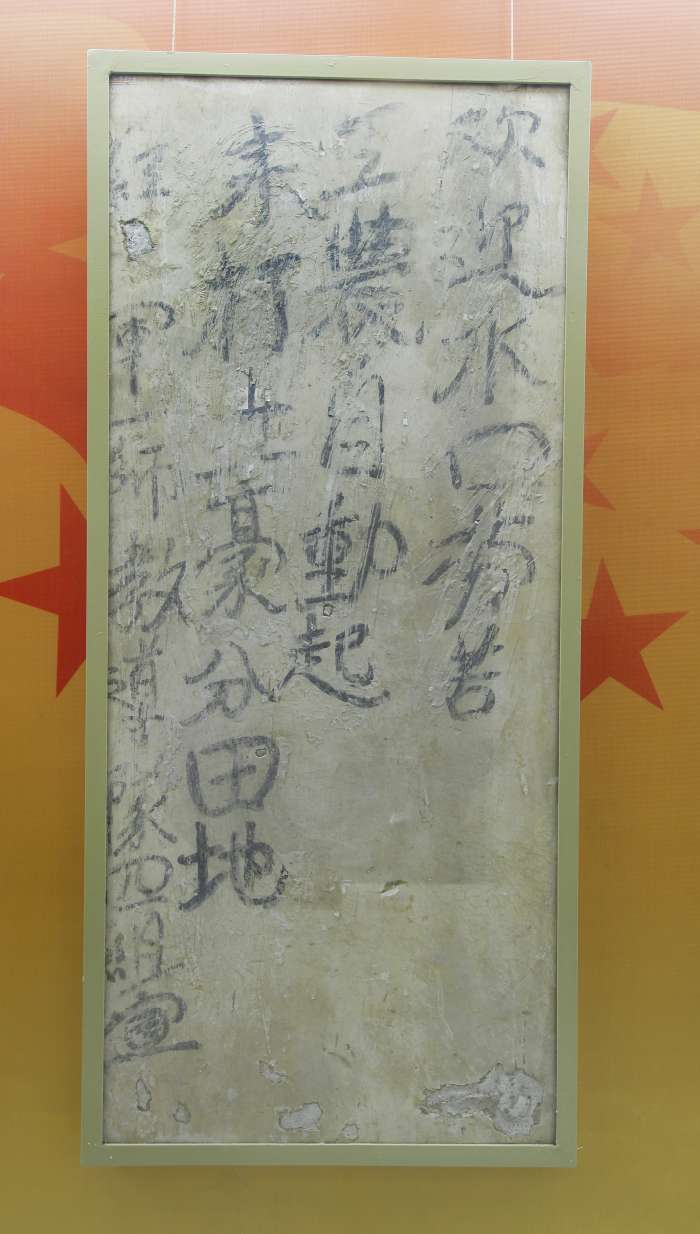 欢迎水口劳苦
工農自動起
来打土豪分田地
红军一师教導隊四组宣